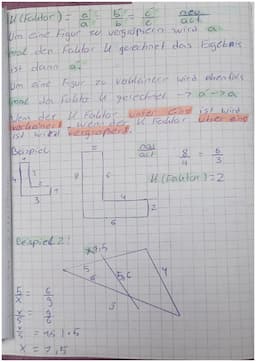 K (Faktor) = a'/a = b'/b = c'/c neu/alt
Um eine Figur zu vergrößern wird a
mal den Faktor k gerechnet das Ergebnis
ist dann a'.
Um eine Figur zu verkleinern wird ebenfalls
mal den Faktor k gerechnet → a → a'
Wenn der k Faktor unter Eins ist wird
verkleinert, wenn der k Faktor über eins
ist wird vergrößert.
Beispiel
neu/alt 8/4 = 6/3
4
3
8
6
4
2
6
K (Faktor) = 2
Beispiel 2:
7,5
5
6
4
5/x = 6/9
x/5 = 9/6
x/5 = 1,5 | · 5
x = 7,5